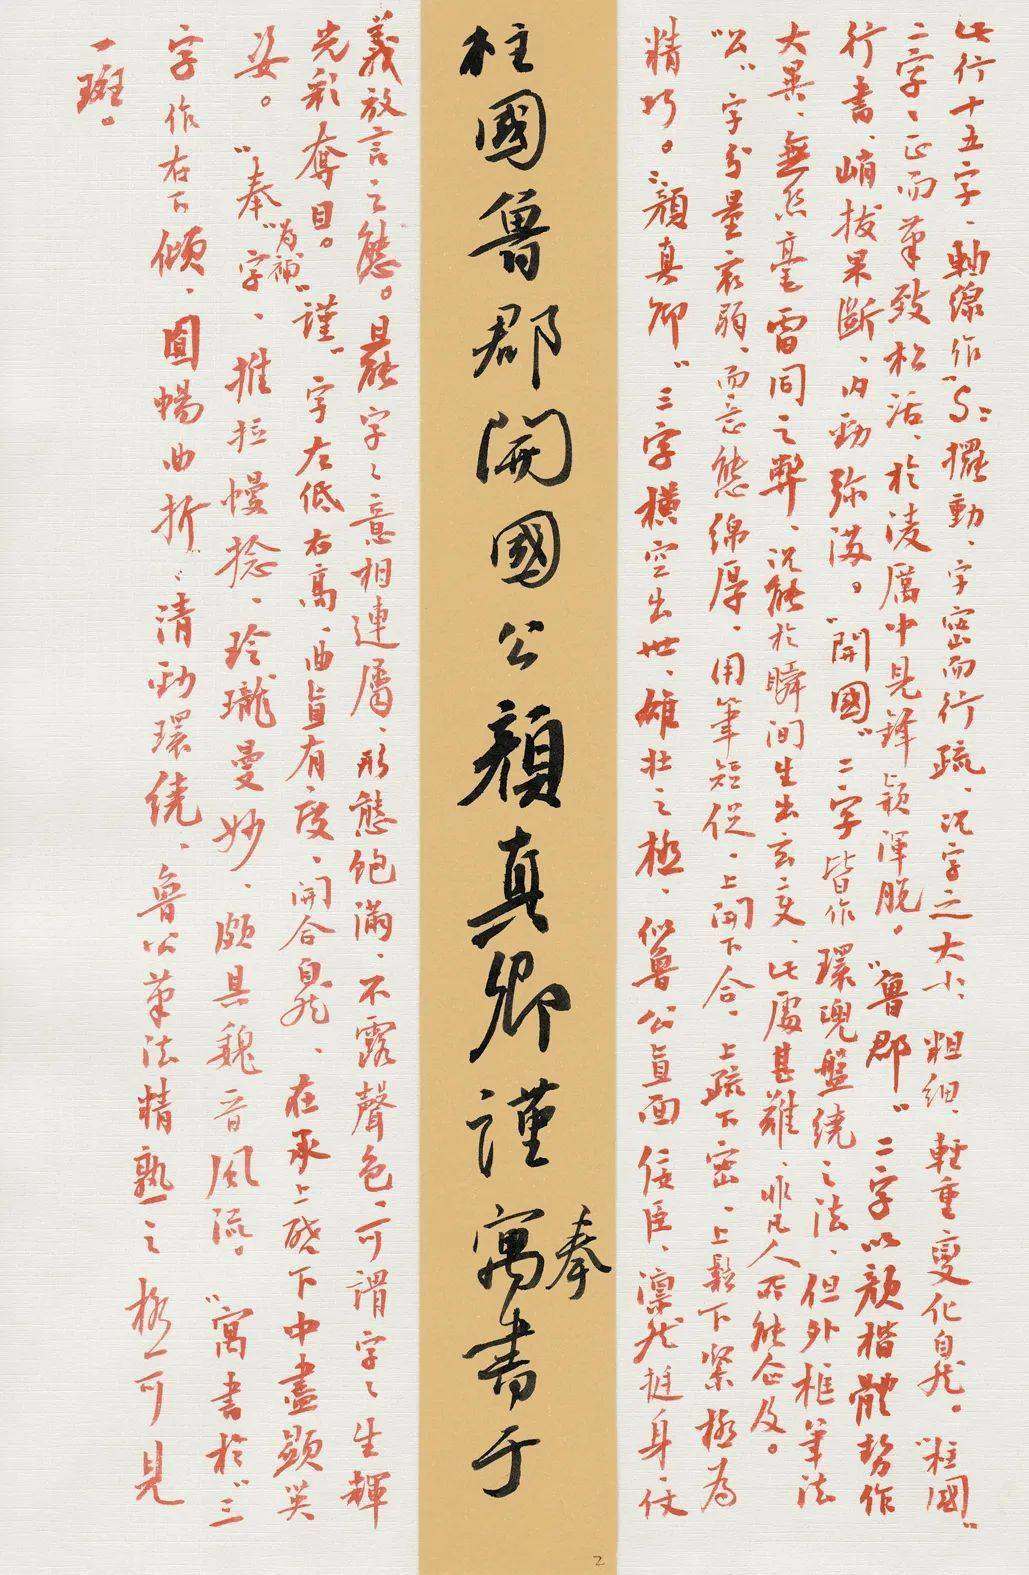 此行十五字、軸線作“S”擺動、字密而行疏、況字之大小、粗細、輕重變化自然。“柱國”
二字、正而筆致松活、於凌厲中見鋒穎渾脫。“魯郡”二字以顏楷體勢作
行書、峭拔果斷、內勁弥滿。“開國”二字皆作環兜盤繞之法、但外框筆法
大異、無絲毫雷同之弊、況能於瞬间生出玄變、此處甚難、非凡人所能企及。
“公”字分量衰弱、而意態綿厚、用筆短促、上開下合、上疏下密、上鬆下緊極為
精巧。“顏真卿”三字橫空出世、雄壮之極、似魯公直面佞臣、凜然挺身、仗
柱國魯郡開國公顏真卿謹寓書于
奉
義放言之態。最字〻意相連屬、形態飽滿、不露聲色、可謂字〻生輝
光彩奪目。“謹”字左低右高、曲直有度、開合自然、在承上啓下中盡顯英
姿。“奉”字、推拉慢捻、玲瓏曼妙、颇具魏晉風流。“寓書於”三
為補
字作右下傾、圓暢曲折、清勁環繞、魯公筆法精熟之極可見
一斑。
2